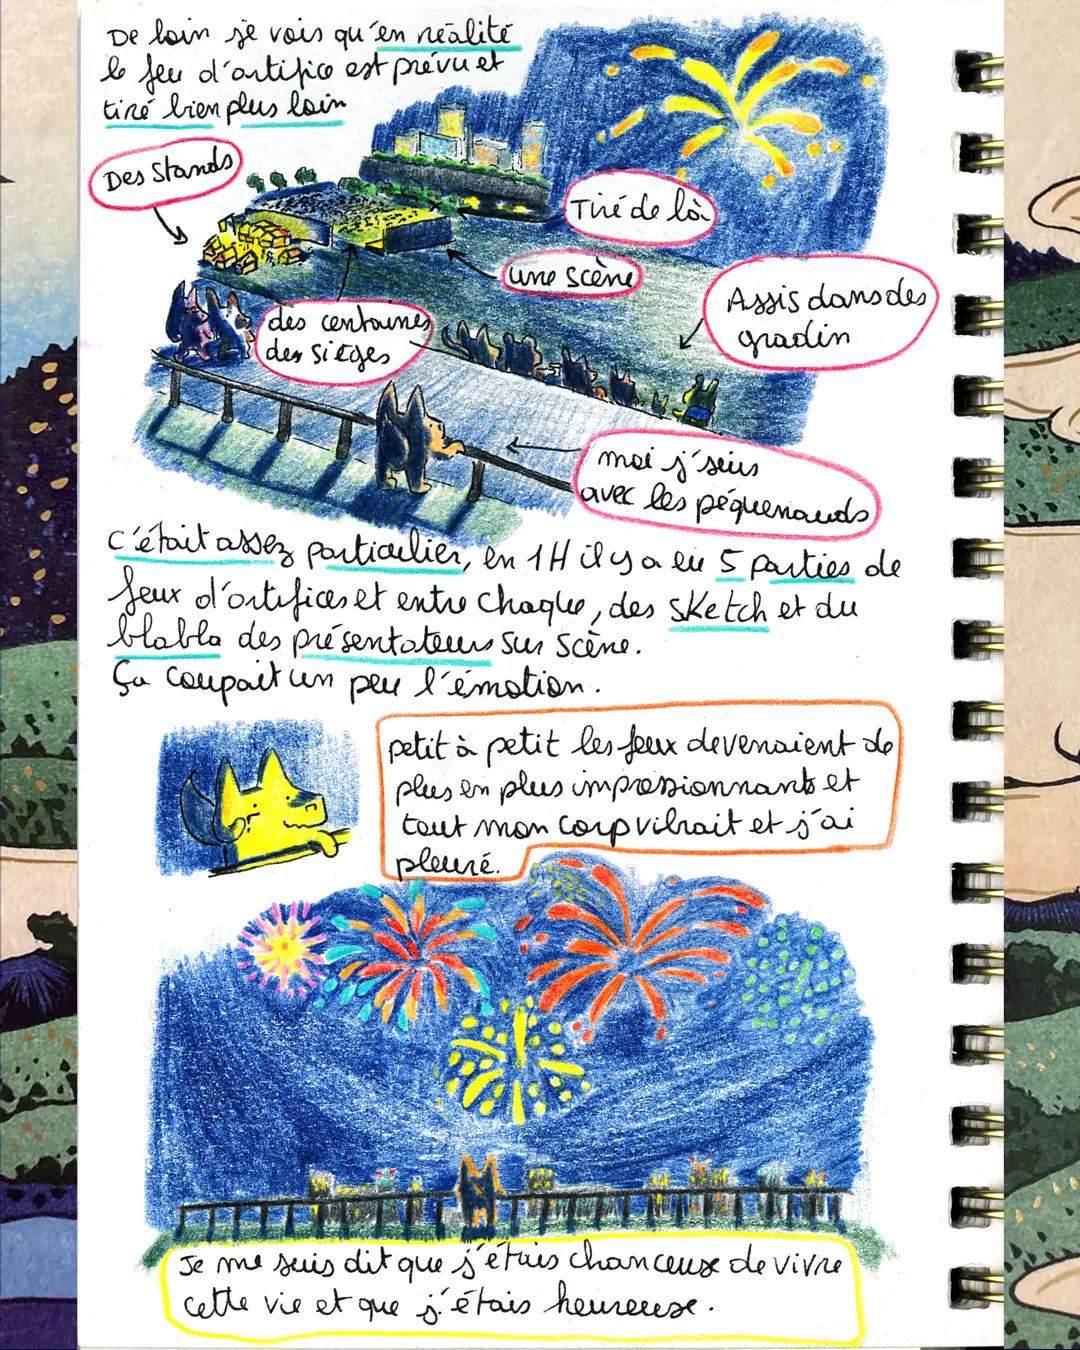 De loin je vois qu'en réalité
le feu d'artifice est prévu et
tiré bien plus loin
Des Stands
Tiré de là
une scène
Assis dans des
gradin
des centaines
des sièges
moi j'suis
avec les péquenauds
C'était assez particulier, en 1H il y a eu 5 parties de
feux d'artifices et entre chaque, des sketch et du
blabla des présentateurs sur scène.
Ça coupait un peu l'émotion.
petit à petit les feux devenaient de
plus en plus impressionnants et
tout mon corp vibrait et j'ai
pleuré.
Je me suis dit que j'étais chanceuse de vivre
cette vie et que j'étais heureuse.